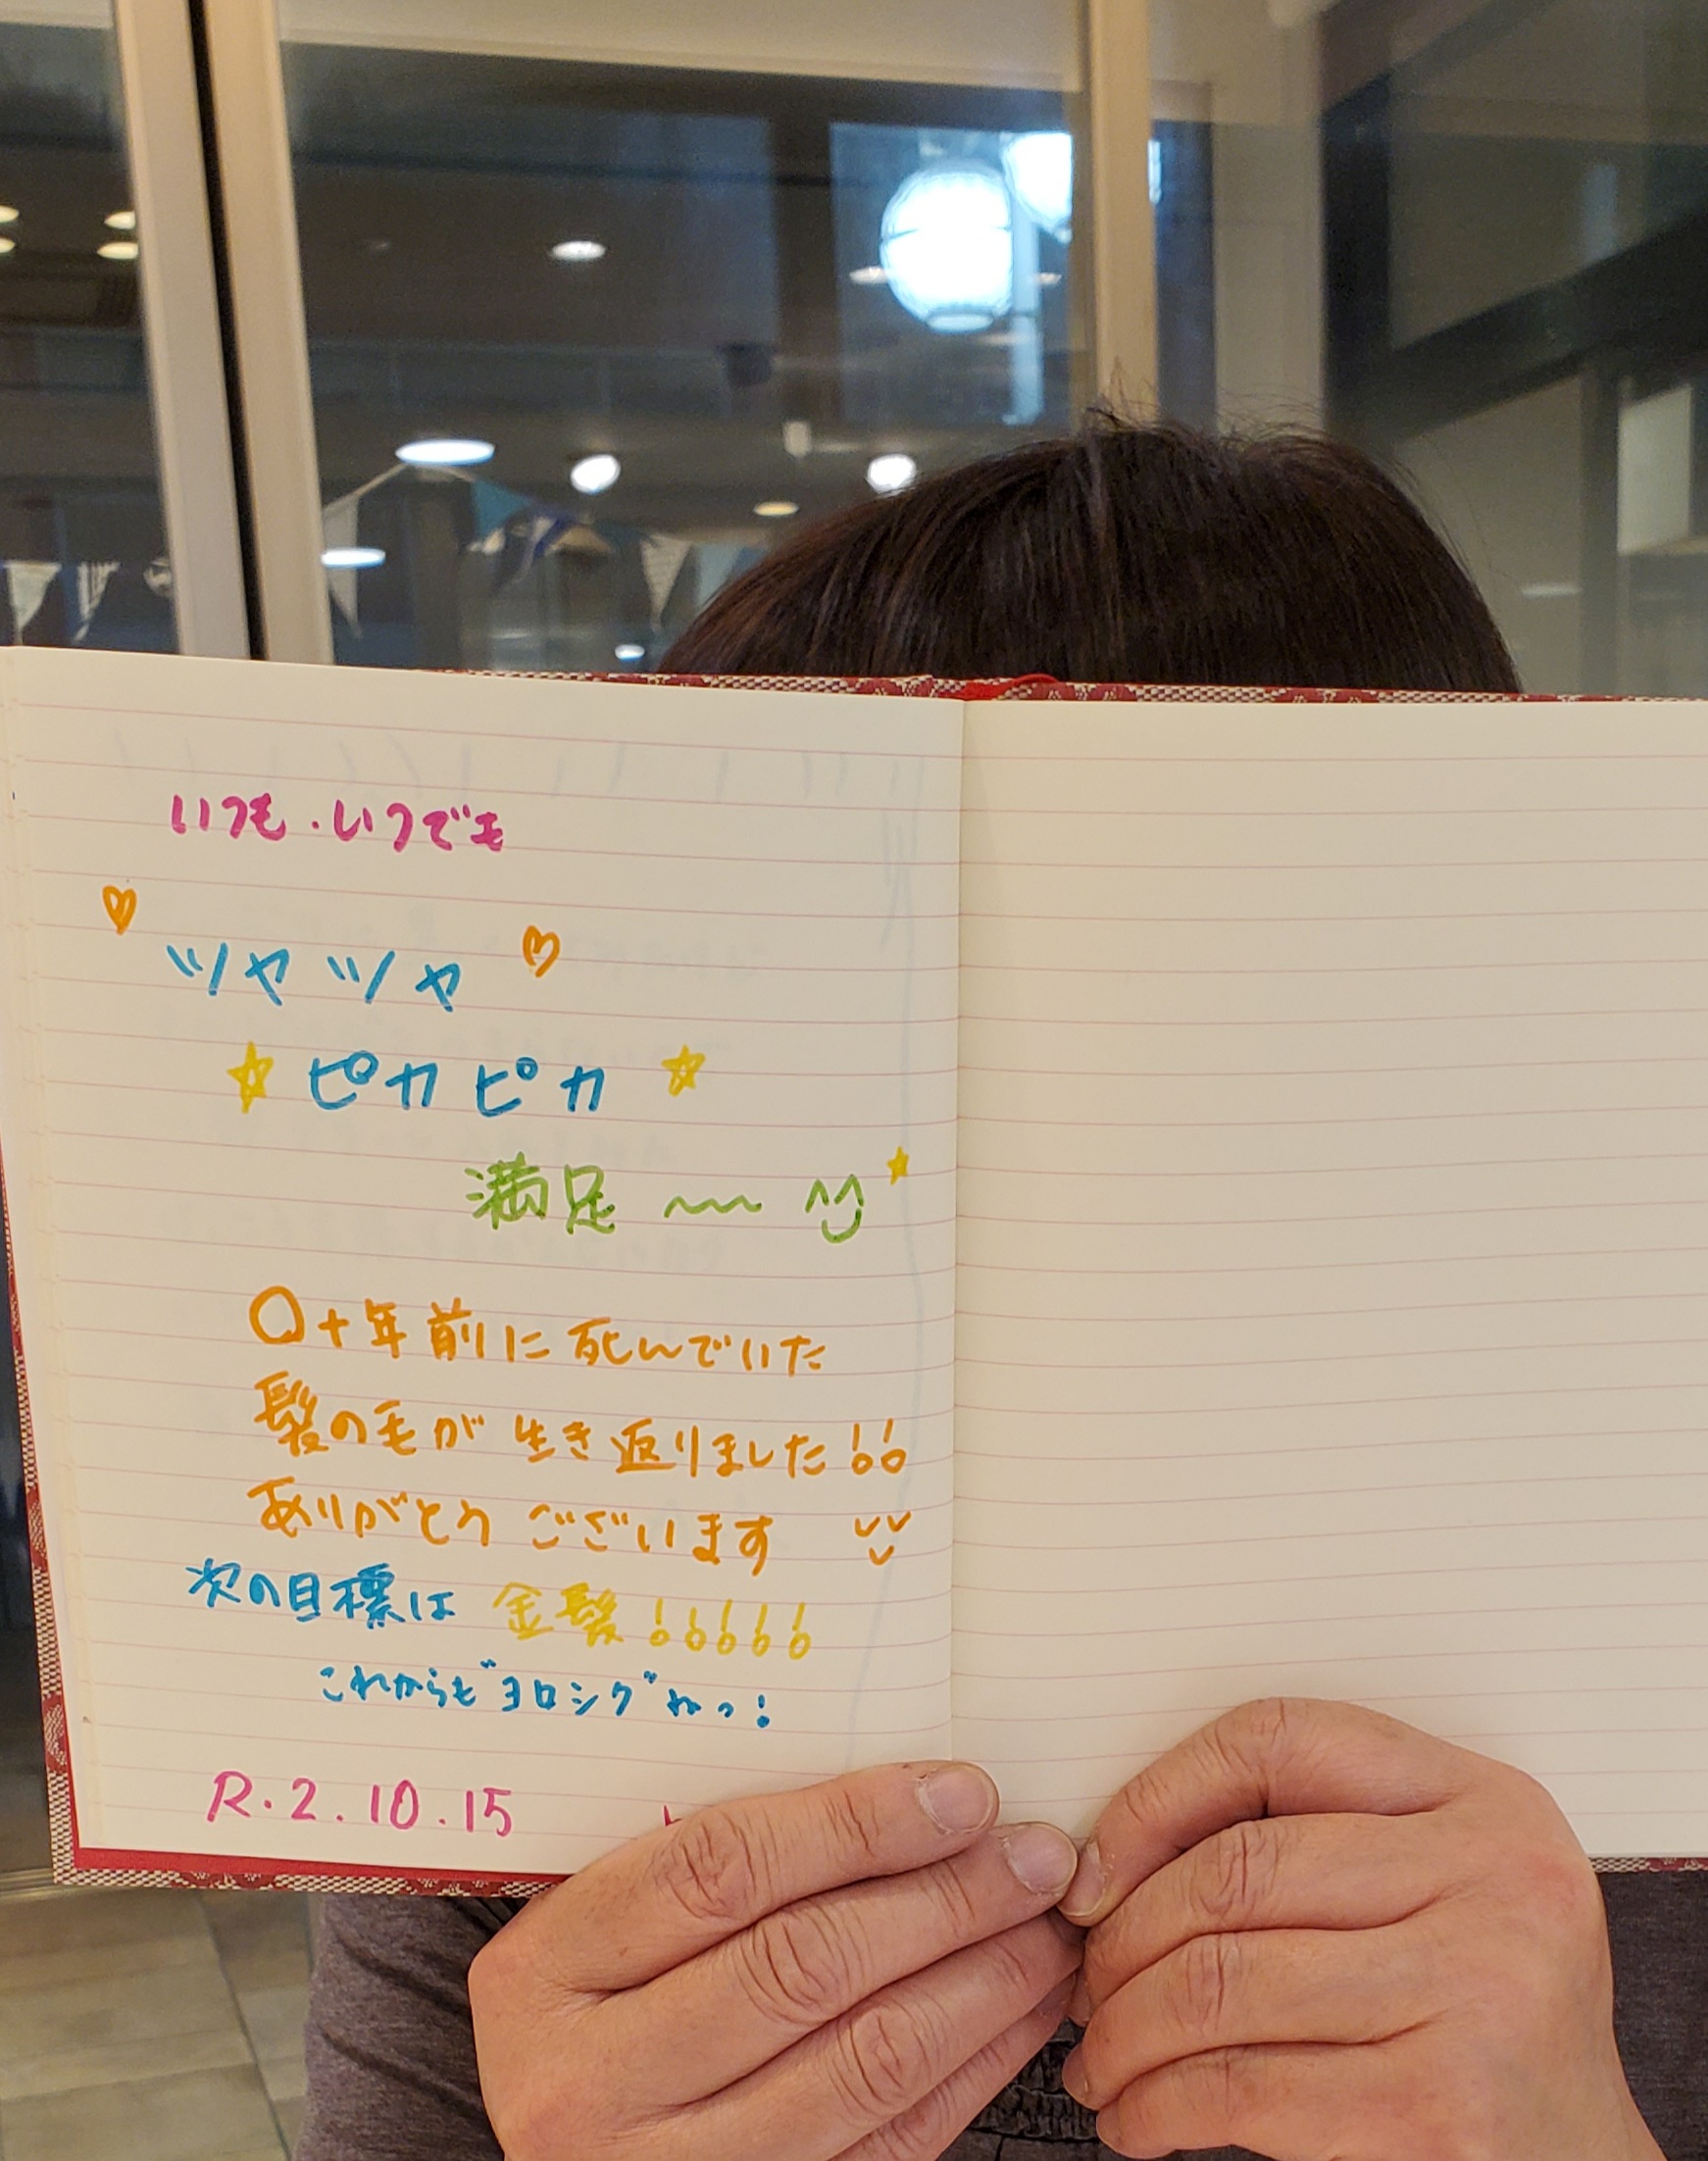 いつも・いつでも
♡ツヤツヤ♡
☆ピカピカ☆
満足〜〜
〇十年前に死んでいた
髪の毛が生き返りました!!
ありがとうございます
次の目標は金髪!!!!!
これからも"ヨロシグ"ねっ!
R.2.10.15